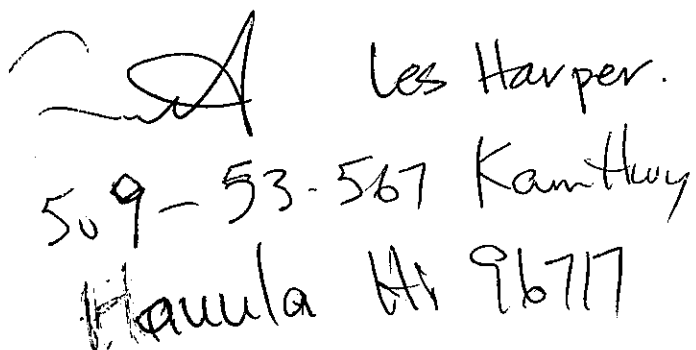 Les Harper.
509-53-567 Kam Hwy
Hauula Hi 96717